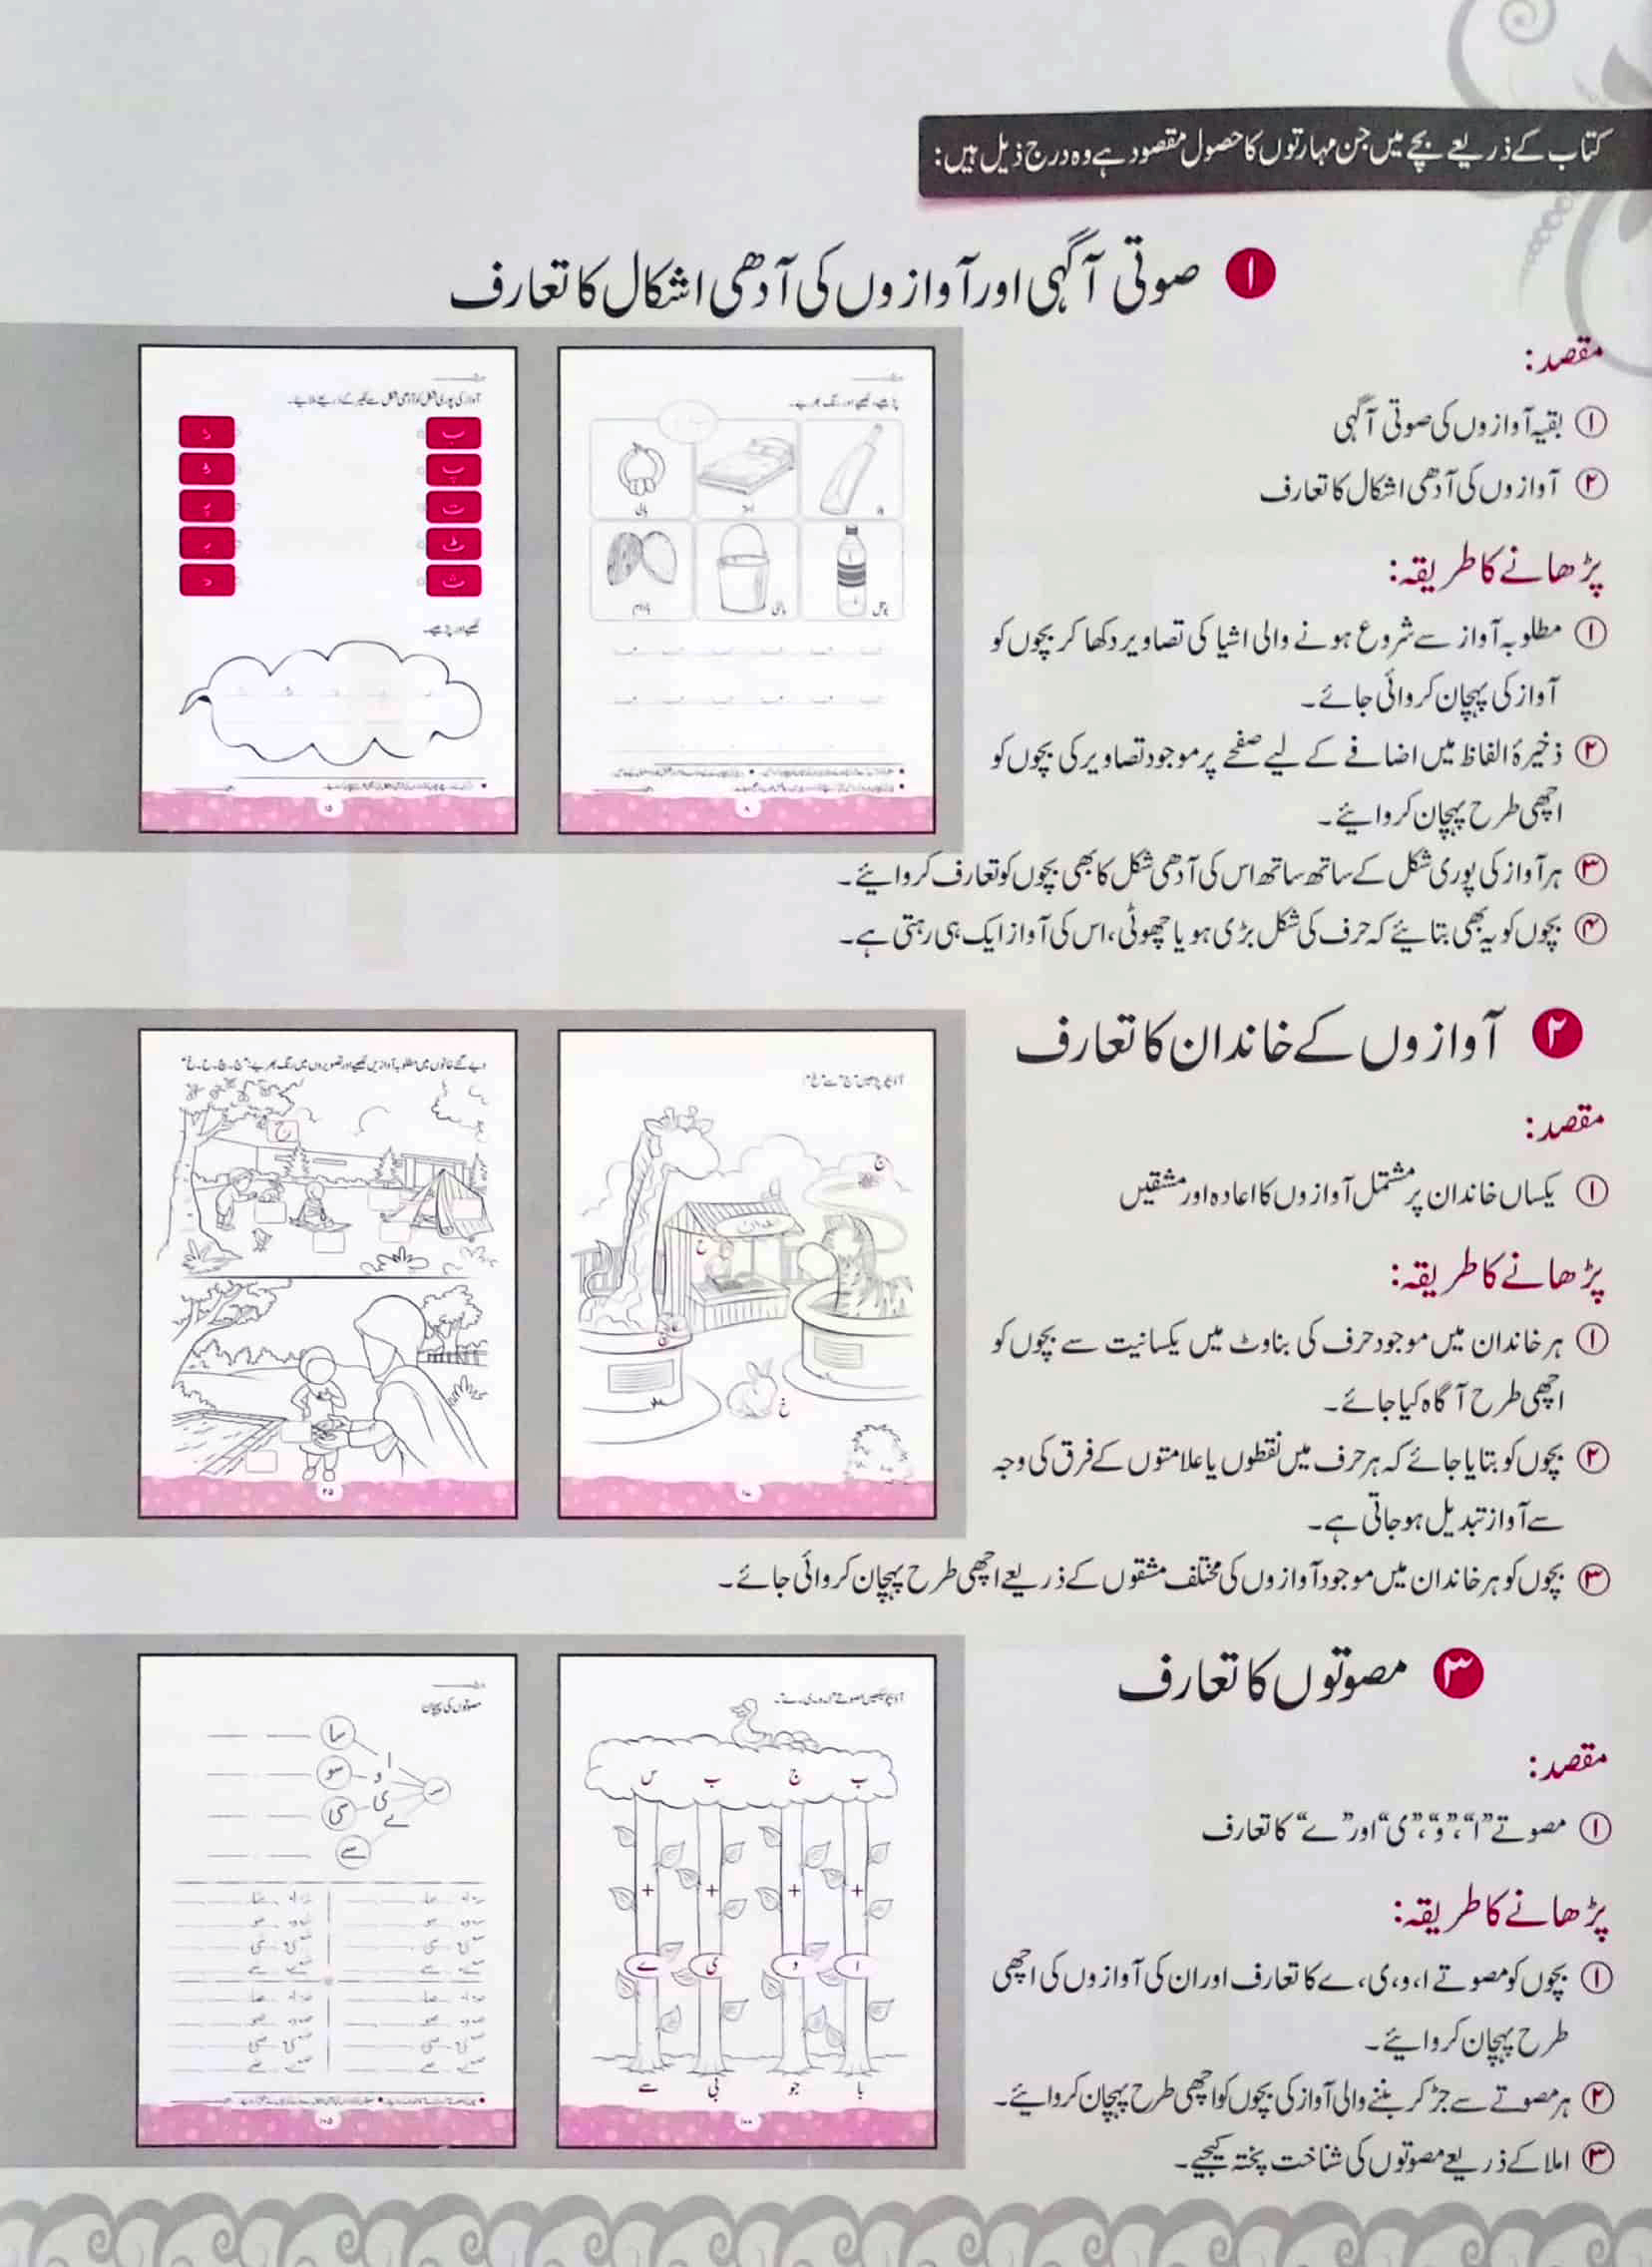 کتاب کے ذریعے بچے میں جن مہارتوں کا حصول مقصود ہے وہ درج ذیل ہیں:
۱ صوتی آگہی اور آوازوں کی آدھی اشکال کا تعارف
مقصد:
① بقیہ آوازوں کی صوتی آگہی
② آوازوں کی آدھی اشکال کا تعارف
پڑھانے کا طریقہ:
① مطلوبہ آواز سے شروع ہونے والی اشیا کی تصاویر دکھا کر بچوں کو
آواز کی پہچان کروائی جائے۔
② ذخیرۂ الفاظ میں اضافے کے لیے صفحے پر موجود تصاویر کی بچوں کو
اچھی طرح پہچان کروایئے۔
③ ہر آواز کی پوری شکل کے ساتھ ساتھ اس کی آدھی شکل کا بھی بچوں کو تعارف کروایئے۔
④ بچوں کو یہ بھی بتایئے کہ حرف کی شکل بڑی ہو یا چھوٹی، اس کی آواز ایک ہی رہتی ہے۔
بوتل
بالٹی
بادام
۸
آواز کی پوری شکل کو آدھی شکل سے لکیر کے ذریعے ملایئے۔
ب
پ
ت
ٹ
ث
لکھیے اور پڑھیے۔
۱۵
۲ آوازوں کے خاندان کا تعارف
مقصد:
① یکساں خاندان پر مشتمل آوازوں کا اعادہ اور مشقیں
پڑھانے کا طریقہ:
① ہر خاندان میں موجود حرف کی بناوٹ میں یکسانیت سے بچوں کو
اچھی طرح آگاہ کیا جائے۔
② بچوں کو بتایا جائے کہ ہر حرف میں نقطوں یا علامتوں کے فرق کی وجہ
سے آواز تبدیل ہو جاتی ہے۔
③ بچوں کو ہر خاندان میں موجود آوازوں کی مختلف مشقوں کے ذریعے اچھی طرح پہچان کروائی جائے۔
خ
دیے گئے خانوں میں مطلوبہ آوازیں لکھیے اور تصویروں میں رنگ بھریے: "ج۔چ۔ح۔خ"
۲۵
۳ مصوتوں کا تعارف
مقصد:
① مصوتے "ا"، "و"، "ی" اور "ے" کا تعارف
پڑھانے کا طریقہ:
① بچوں کو مصوتے ا، و، ی، ے کا تعارف اور ان کی آوازوں کی اچھی
طرح پہچان کروایئے۔
② ہر مصوتے سے جڑ کر بننے والی آواز کی بچوں کو اچھی طرح پہچان کروایئے۔
③ املا کے ذریعے مصوتوں کی شناخت پختہ کیجیے۔
ب ج ب س
+ + + +
ا و ی ے
با جو بی سے
۱۰۰
مصوتوں کی پہچان
سا
ا
سو
و
سی
ی
ے
سے
۱۰۵